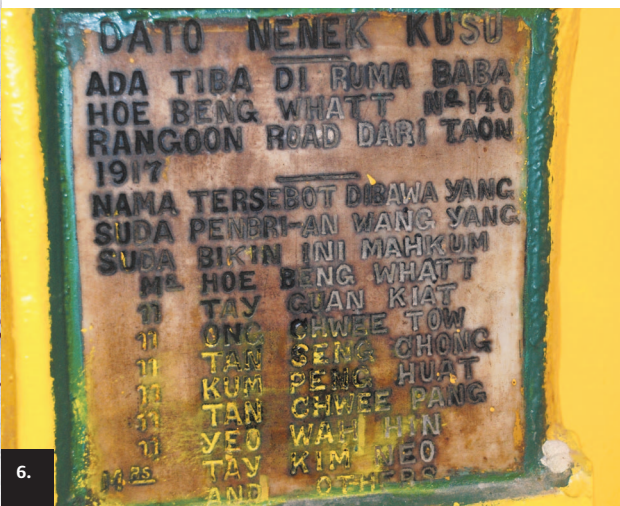 DATO NENEK KUSU
ADA TIBA DI RUMA BABA
HOE BENG WHATT No 140
RANGOON ROAD DARI TAON
1917
NAMA TERSEBOT DIBAWA YANG
SUDA PENBRI-AN WANG YANG
SUDA BIKIN INI MAHKUM
MR HOE BENG WHATT
" TAY GUAN KIAT
" ONG CHWEE TOW
" TAN SENG CHONG
" KUM PENG HUAT
" TAN CHWEE PANG
" YEO WAH HIN
MRS TAY KIM NEO
AND OTHERS
6.